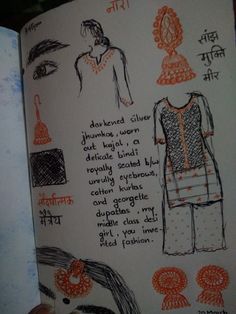 नारी
साँझ
मुक्ति
मीर
darkened silver
jhumkas, worn
out kajal, a
delicate bindi
royally seated b/w
unruly eyebrows,
cotton kurtas
and georgette
dupattas, my
middle class desi
girl, you inve-
nted fashion.
मैत्रेय